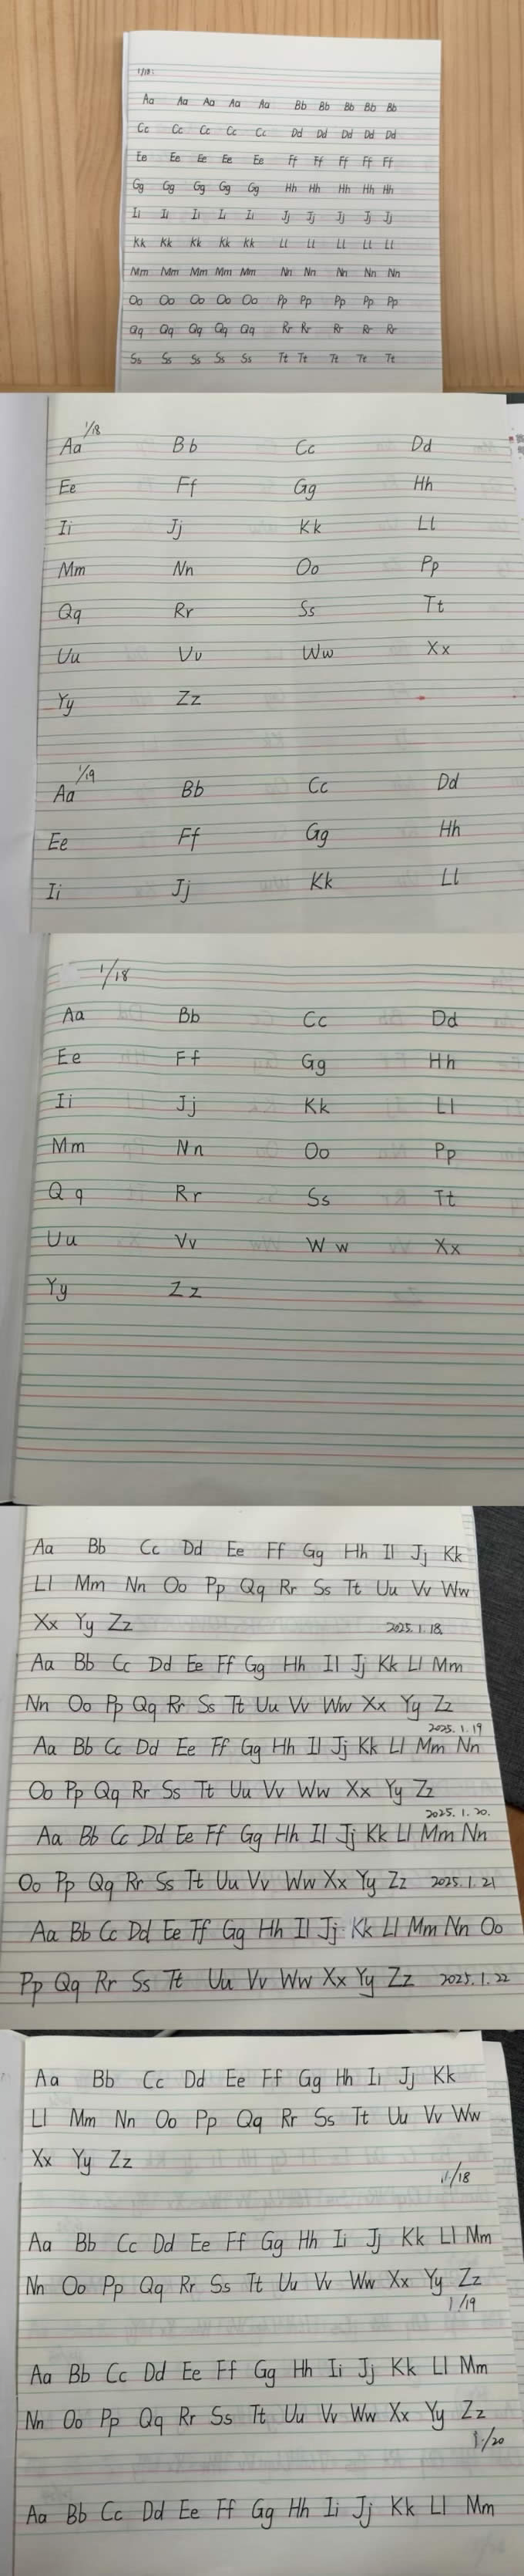 1/18.
Aa Aa Aa Aa Aa Bb Bb Bb Bb Bb
Cc Cc Cc Cc Cc Dd Dd Dd Dd Dd
Ee Ee Ee Ee Ee Ff Ff Ff Ff Ff
Gg Gg Gg Gg Gg Hh Hh Hh Hh Hh
Ii Ii Ii Ii Ii Jj Jj Jj Jj Jj
Kk Kk Kk Kk Kk Ll Ll Ll Ll Ll
Mm Mm Mm Mm Mm Nn Nn Nn Nn Nn
Oo Oo Oo Oo Oo Pp Pp Pp Pp Pp
Qq Qq Qq Qq Qq Rr Rr Rr Rr Rr
Ss Ss Ss Ss Ss Tt Tt Tt Tt Tt
1/18
Aa Bb Cc Dd
Ee Ff Gg Hh
Ii Jj Kk Ll
Mm Nn Oo Pp
Qq Rr Ss Tt
Uu Vv Ww Xx
Yy Zz
1/19
Aa Bb Cc Dd
Ee Ff Gg Hh
Ii Jj Kk Ll
1/18
Aa Bb Cc Dd
Ee Ff Gg Hh
Ii Jj Kk Ll
Mm Nn Oo Pp
Qq Rr Ss Tt
Uu Vv Ww Xx
Yy Zz
Aa Bb Cc Dd Ee Ff Gg Hh Il Jj Kk
Ll Mm Nn Oo Pp Qq Rr Ss Tt Uu Vv Ww
Xx Yy Zz 2025.1.18.
Aa Bb Cc Dd Ee Ff Gg Hh Il Jj Kk Ll Mm
Nn Oo Pp Qq Rr Ss Tt Uu Vv Ww Xx Yy Zz
2025.1.19
Aa Bb Cc Dd Ee Ff Gg Hh Il Jj Kk Ll Mm Nn
Oo Pp Qq Rr Ss Tt Uu Vv Ww Xx Yy Zz
2025.1.20.
Aa Bb Cc Dd Ee Ff Gg Hh Il Jj Kk Ll Mm Nn
Oo Pp Qq Rr Ss Tt Uu Vv Ww Xx Yy Zz 2025.1.21
Aa Bb Cc Dd Ee Ff Gg Hh Il Jj Kk Ll Mm Nn Oo
Pp Qq Rr Ss Tt Uu Vv Ww Xx Yy Zz 2025.1.22
Aa Bb Cc Dd Ee Ff Gg Hh Ii Jj Kk
Ll Mm Nn Oo Pp Qq Rr Ss Tt Uu Vv Ww
Xx Yy Zz
1/18
Aa Bb Cc Dd Ee Ff Gg Hh Ii Jj Kk Ll Mm
Nn Oo Pp Qq Rr Ss Tt Uu Vv Ww Xx Yy Zz
1/19
Aa Bb Cc Dd Ee Ff Gg Hh Ii Jj Kk Ll Mm
Nn Oo Pp Qq Rr Ss Tt Uu Vv Ww Xx Yy Zz
1/20
Aa Bb Cc Dd Ee Ff Gg Hh Ii Jj Kk Ll Mm